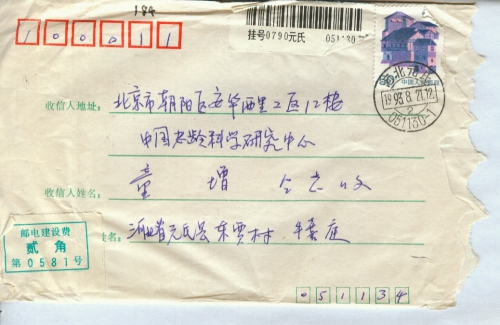 184
100011
挂号0790元氏 051130
中国人民邮政
河北元氏
1993.8.21.12
2
051130-1
收信人地址: 北京市朝阳区安华西里2区12楼
中国老龄科学研究中心
收信人姓名: 童增 同志收
邮电建设费
贰角
第0581号
姓名: 河北省元氏县东贾村
051134